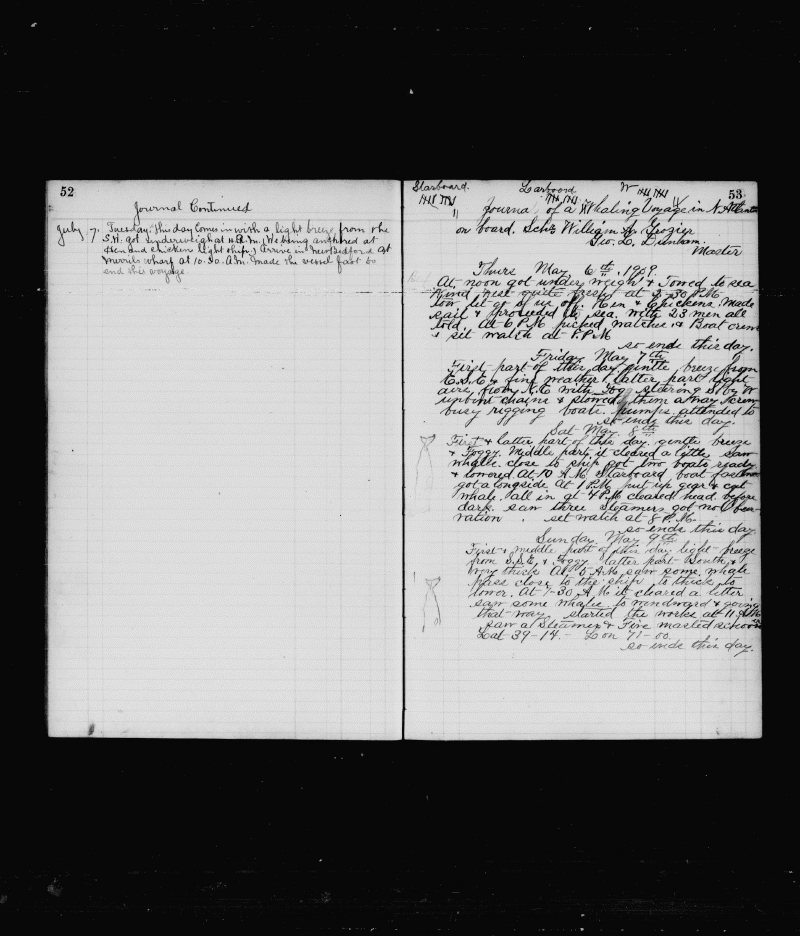 52
Journal Continued
July 7. Tuesday. This day Comes in with a light breeze from the
S.W. Got underweigh at A.M. We being anchored at
Hen and chicken light ship. Arrive in New Bedford At
Merrils wharf at 10.30. A.M. Made the vessel fast so
end this voyage
Starboard. Larboard W
53
Journal of a Whaling Voyage in N. Atlantic
on board. Schr William A. Grozier
Geo. L. Dunham.
Master
Thurs May 6th, 1909.
At noon got under weigh & Towed to sea
Wind west quite fresh at 2-30 P.M.
tow let go of us off Hen & Chickens made
sail & proceeded to sea. with 23 men all
told. At 6 P.M picked watches & Boat crews
& sit watch at P.M
so ends this day.
Friday May 7th
First part of this day gentle breeze from
E.S.E. & fine weather latter part light
airs from N.E with Fog stering S by W
unbent chains & stowed them away crew
busy rigging boats. pumps attended to
so ends this day.
Sat May 8th
First & latter part of this day gentle breeze
& Foggy. Middle part it cleared a little saw
whales close to ship got two boats ready
& lowered At 10 A.M Starboard boat fastened
got alongside At 1 P.M put up gear & cut
whale all in at 4 P.M cleared head before
dark. saw three Steamers got no Obser
vation. set watch at 8 P.M.
so ends this day
Sunday May 9th
First & middle part of this day light breeze
from S.S.E, & Foggy latter part South &
very thick At 5 A.M. saw some whale
pass close to the ship to thick to
lower. At 7-30 A.M it cleared a litter
saw some whales to windward & going
that way. started the works at 11 A.M
saw a Steamer & Five masted schooner
Lat 39-14.- Lon 71-00.
so ends this day.